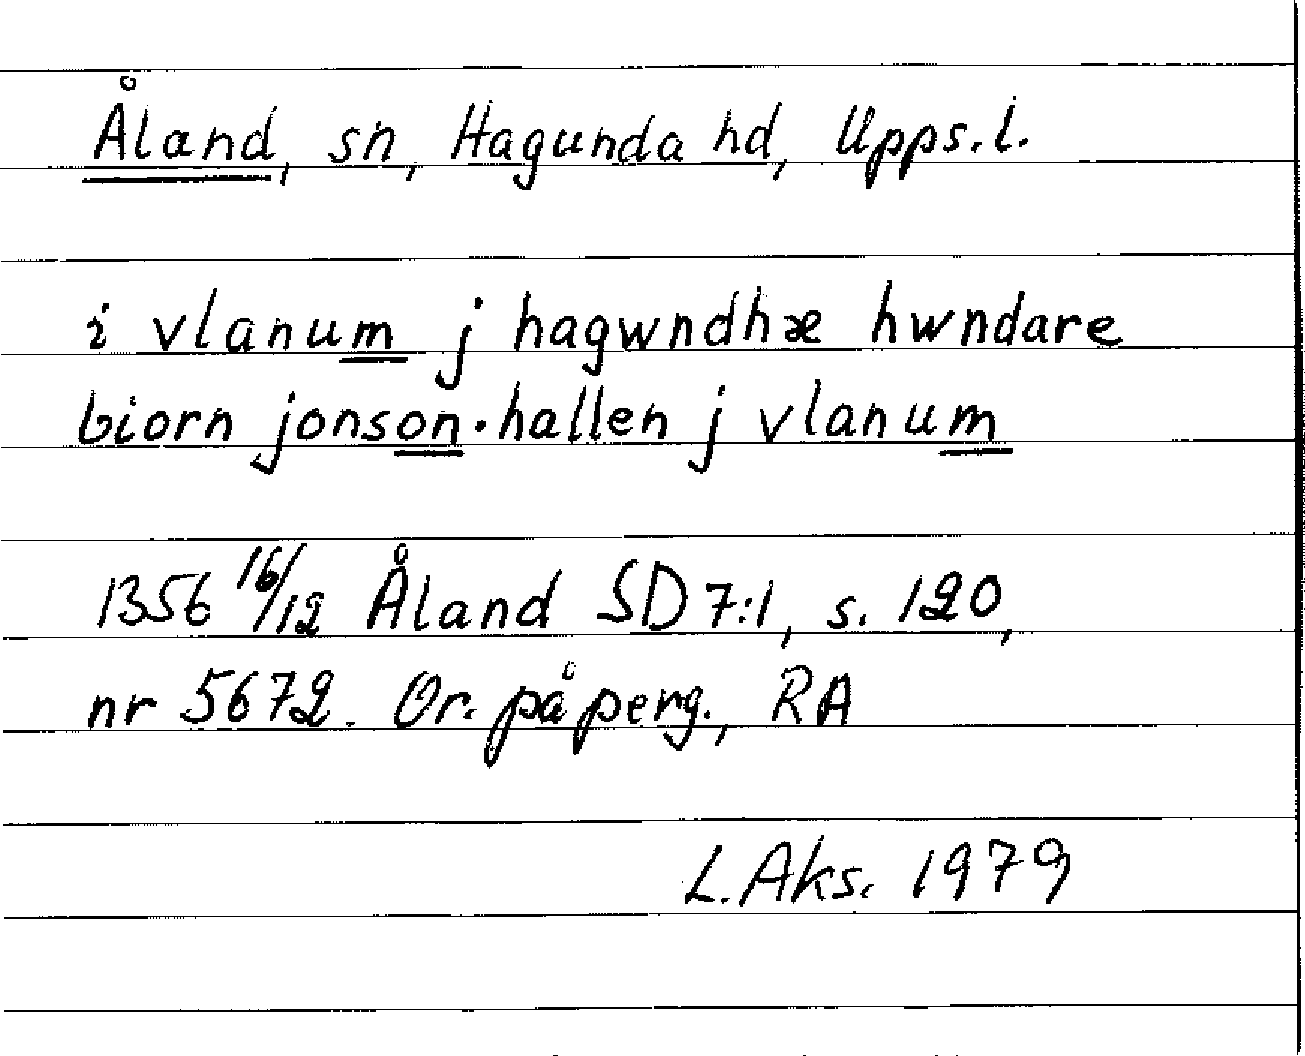 Åland, sn, Hagunda hd, Upps.l.
i vlanum j hagwndhæ hwndare
biorn jonson · hallen j vlanum
1356 16/12 Åland SD 7:1, s. 120,
nr 5672. Or. på perg., RA
L. Aks. 1979